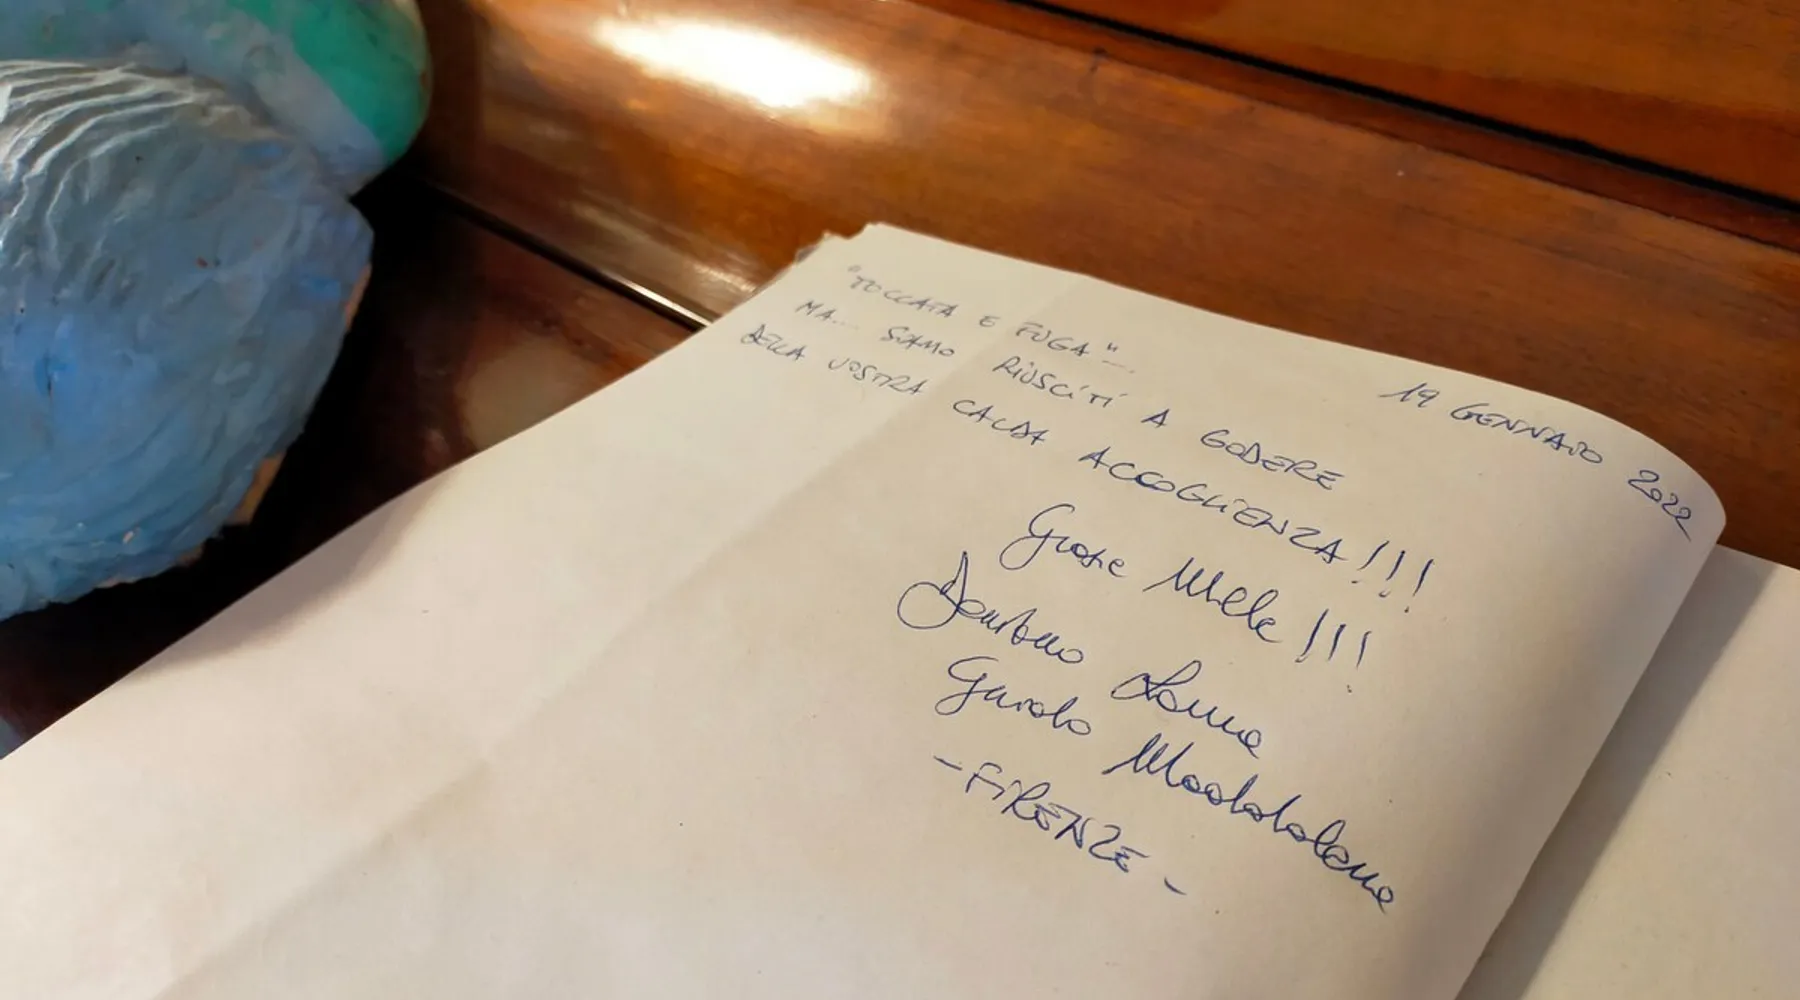 19 GENNAIO 2022
"TOCCATA E FUGA"...
MA... SIAMO RIUSCITI A GODERE
DELLA VOSTRA CALDA ACCOGLIENZA!!!
Grazie Mille!!!
Guido Maddalena
-FIRENZE-